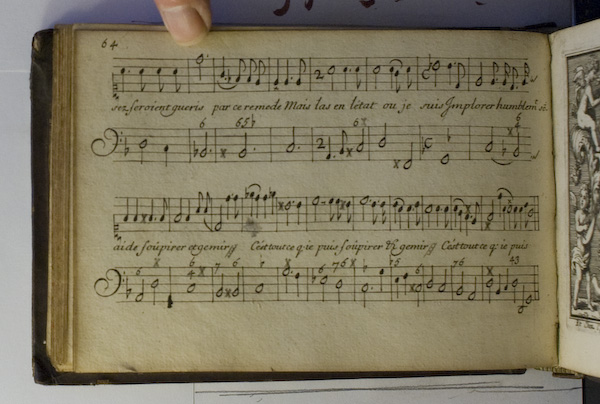 64
sez seroient gueris par ce remede Mais las en l'etat ou je suis Implorer humblemt. sō.
aide soûpirer et gemir C'est tout ce q. ie puis soûpirer & gemir C'est tout ce q: ie puis